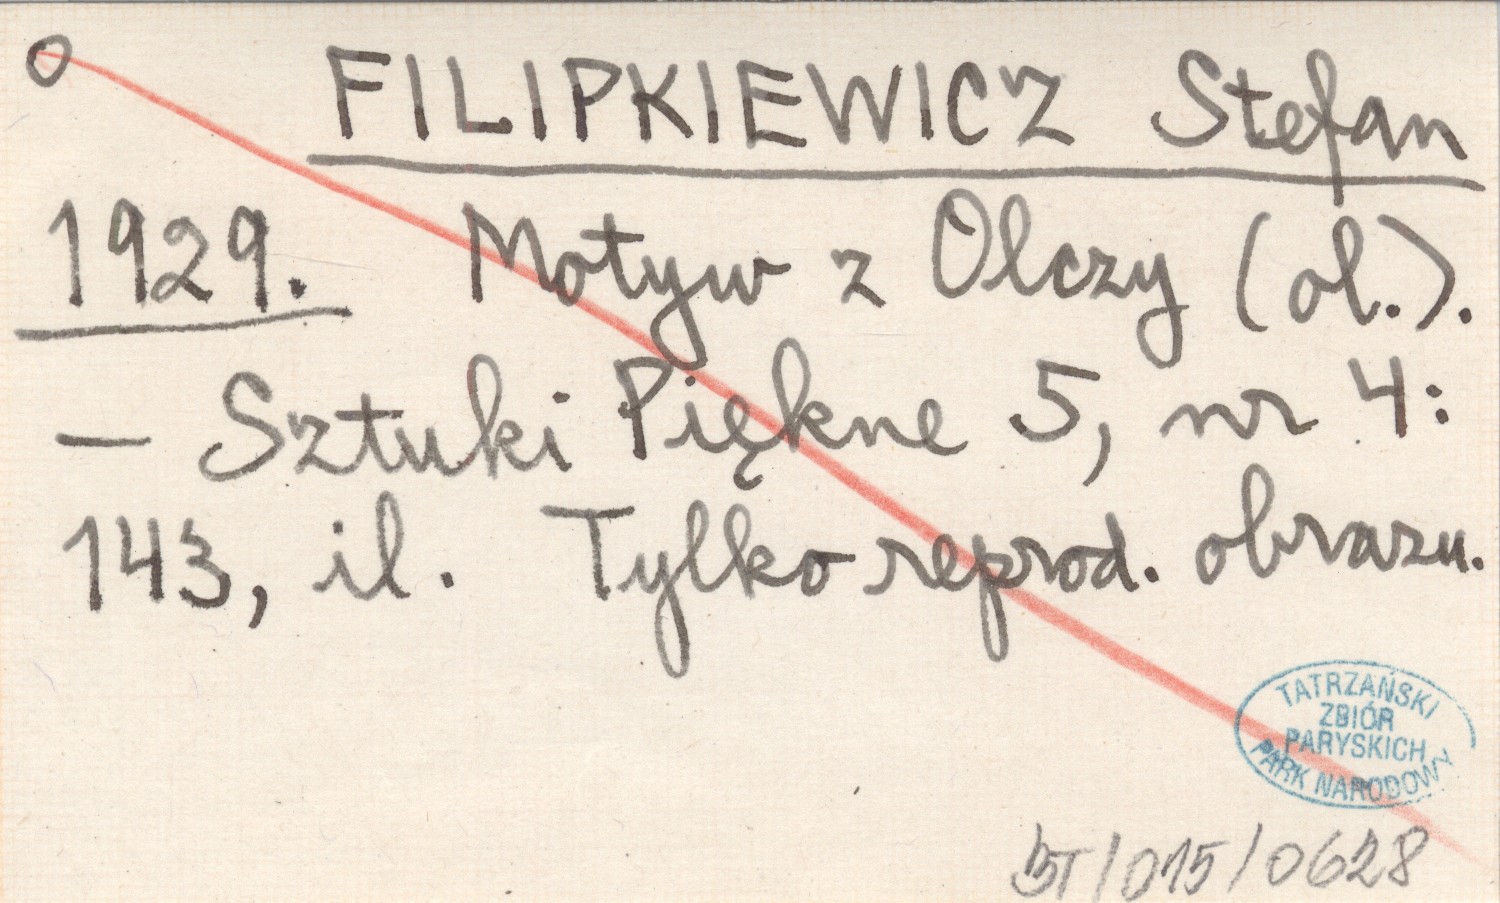 O FILIPKIEWICZ Stefan
1929. Motyw z Olczy (ol.).
— Sztuki Piękne 5, nr 4:
143, il. Tylko reprod. obrazu.
TATRZAŃSKI
ZBIÓR
PARYSKICH
PARK NARODOWY
BT/015/0628